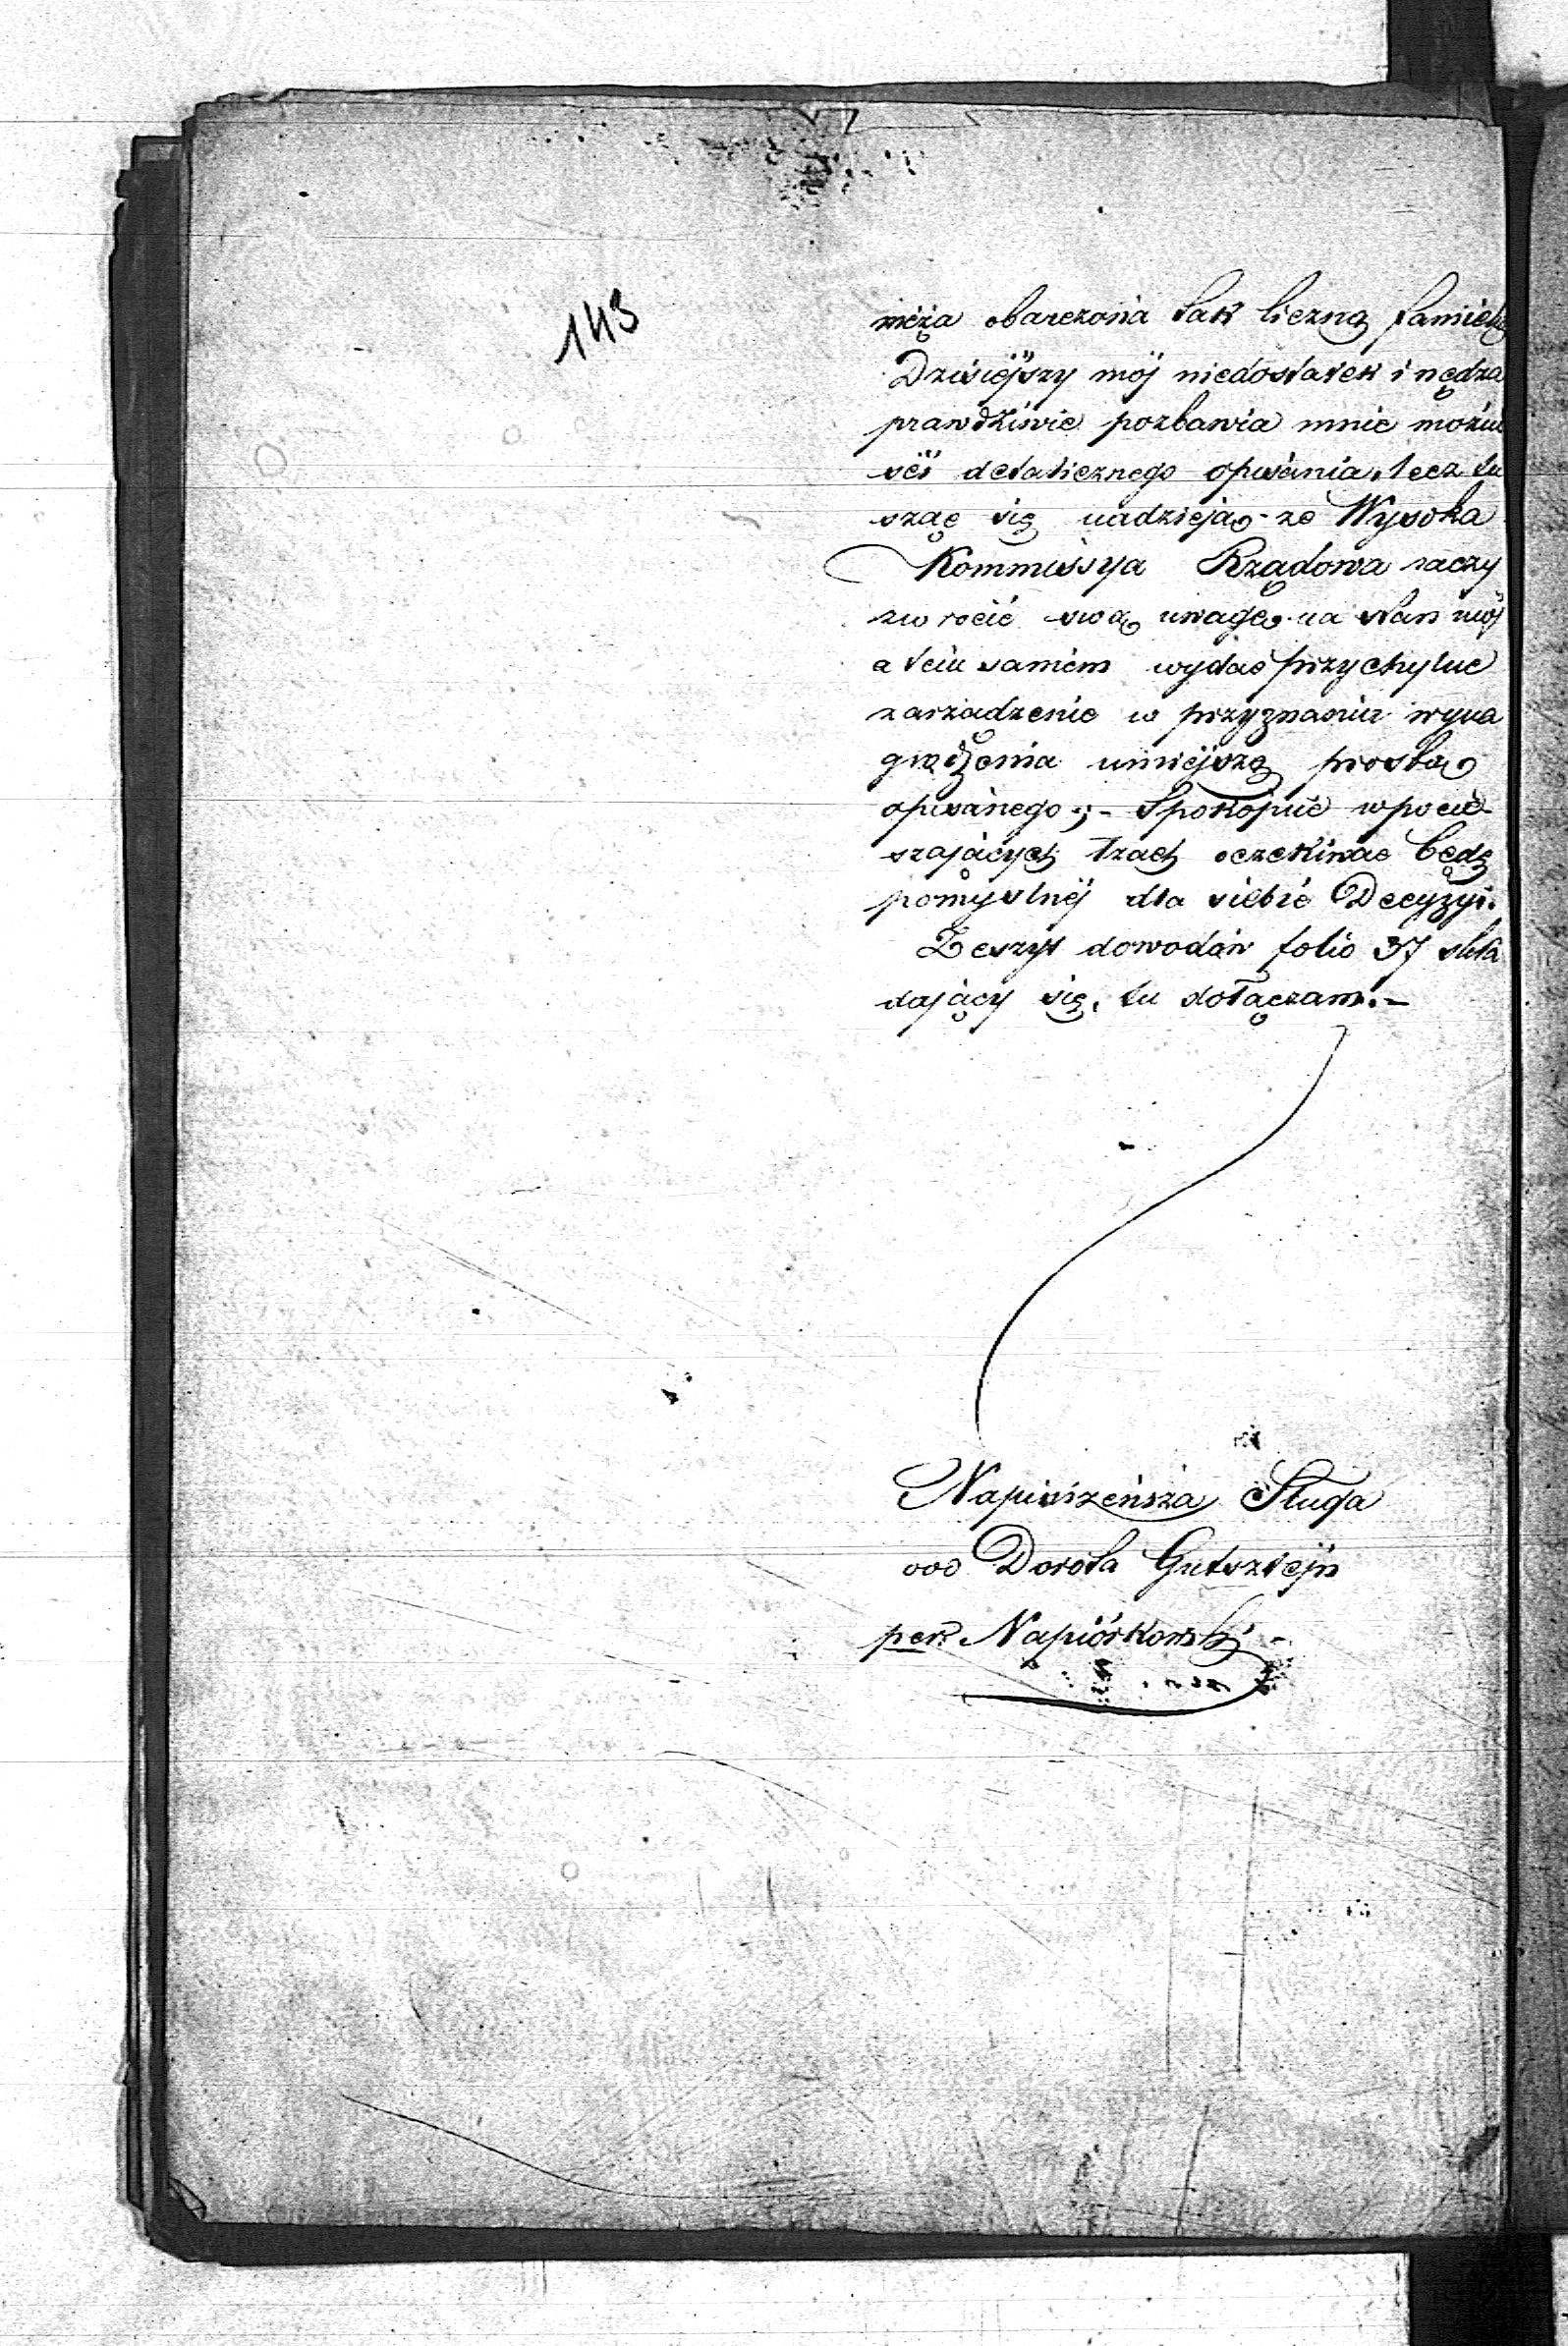 143
męża obarczona tak liczną familią
Dzisiejszy mój niedostatek i nędza
prawdziwie pozbawia mnie możno
ści detalicznego opisania, lecz tu
szęc się nadzieją - że Wysoka
Kommissya Rządowa raczy
zwrócić swą uwagę na stan mój
a tem samem wydać przychylne
zarządzenie w przyznaniu wyna
grodzenia niniejszą prośbą
opisanego; - Spokojnie w pocie-
szających łzach oczekiwać będę
pomyslnéj dla siebie Decyzyi.
Zeszyt dowodów folio 37 skła
dający się, tu dołączam. -
Najniższeńsza Sługa
ooo Dorota Gutsztejn
per Napiórkowski -